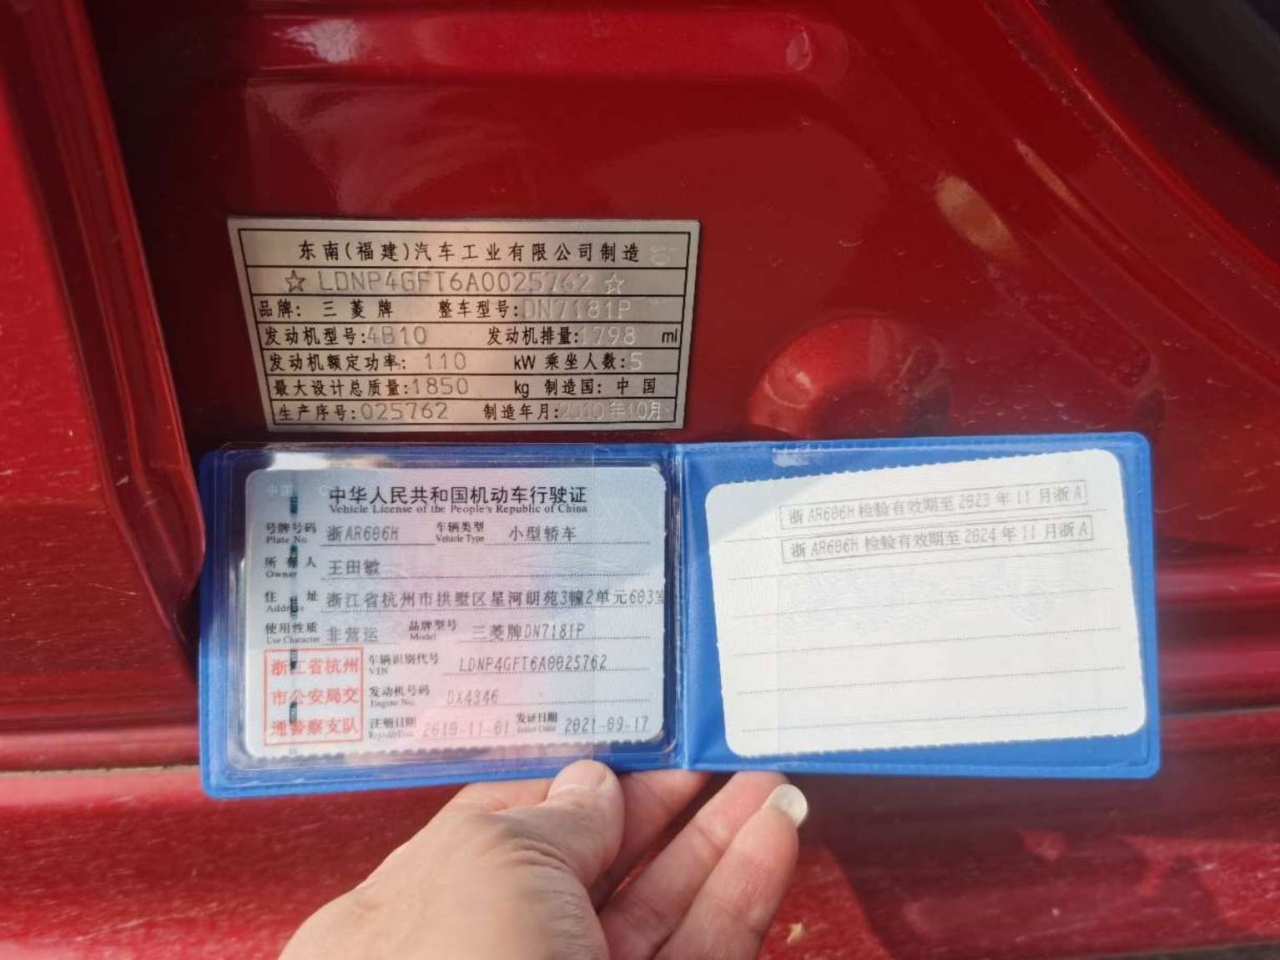 东南(福建)汽车工业有限公司制造
☆ LDNP4GFT6A0025762 ☆
品牌: 三菱牌 整车型号: DN7181P
发动机型号: 4B10 发动机排量: 1798 ml
发动机额定功率: 110 kW 乘坐人数: 5
最大设计总质量: 1850 kg 制造国: 中国
生产序号: 025762 制造年月: 2010年10月
中华人民共和国机动车行驶证
Vehicle License of the People's Republic of China
号牌号码 浙AR606H 车辆类型 小型轿车
Plate No. Vehicle Type
所有人 王田敏
Owner
住址 浙江省杭州市拱墅区星河明苑3幢2单元603室
Address
使用性质 非营运 品牌型号 三菱牌DN7181P
Use Character Model
浙江省杭州
市公安局交
通警察支队
车辆识别代号 LDNP4GFT6A0025762
VIN
发动机号码 DX4346
Engine No.
注册日期 2010-11-01 发证日期 2021-09-17
Register Date Issue Date
浙AR606H检验有效期至2023年11月浙A
浙AR606H检验有效期至2024年11月浙A